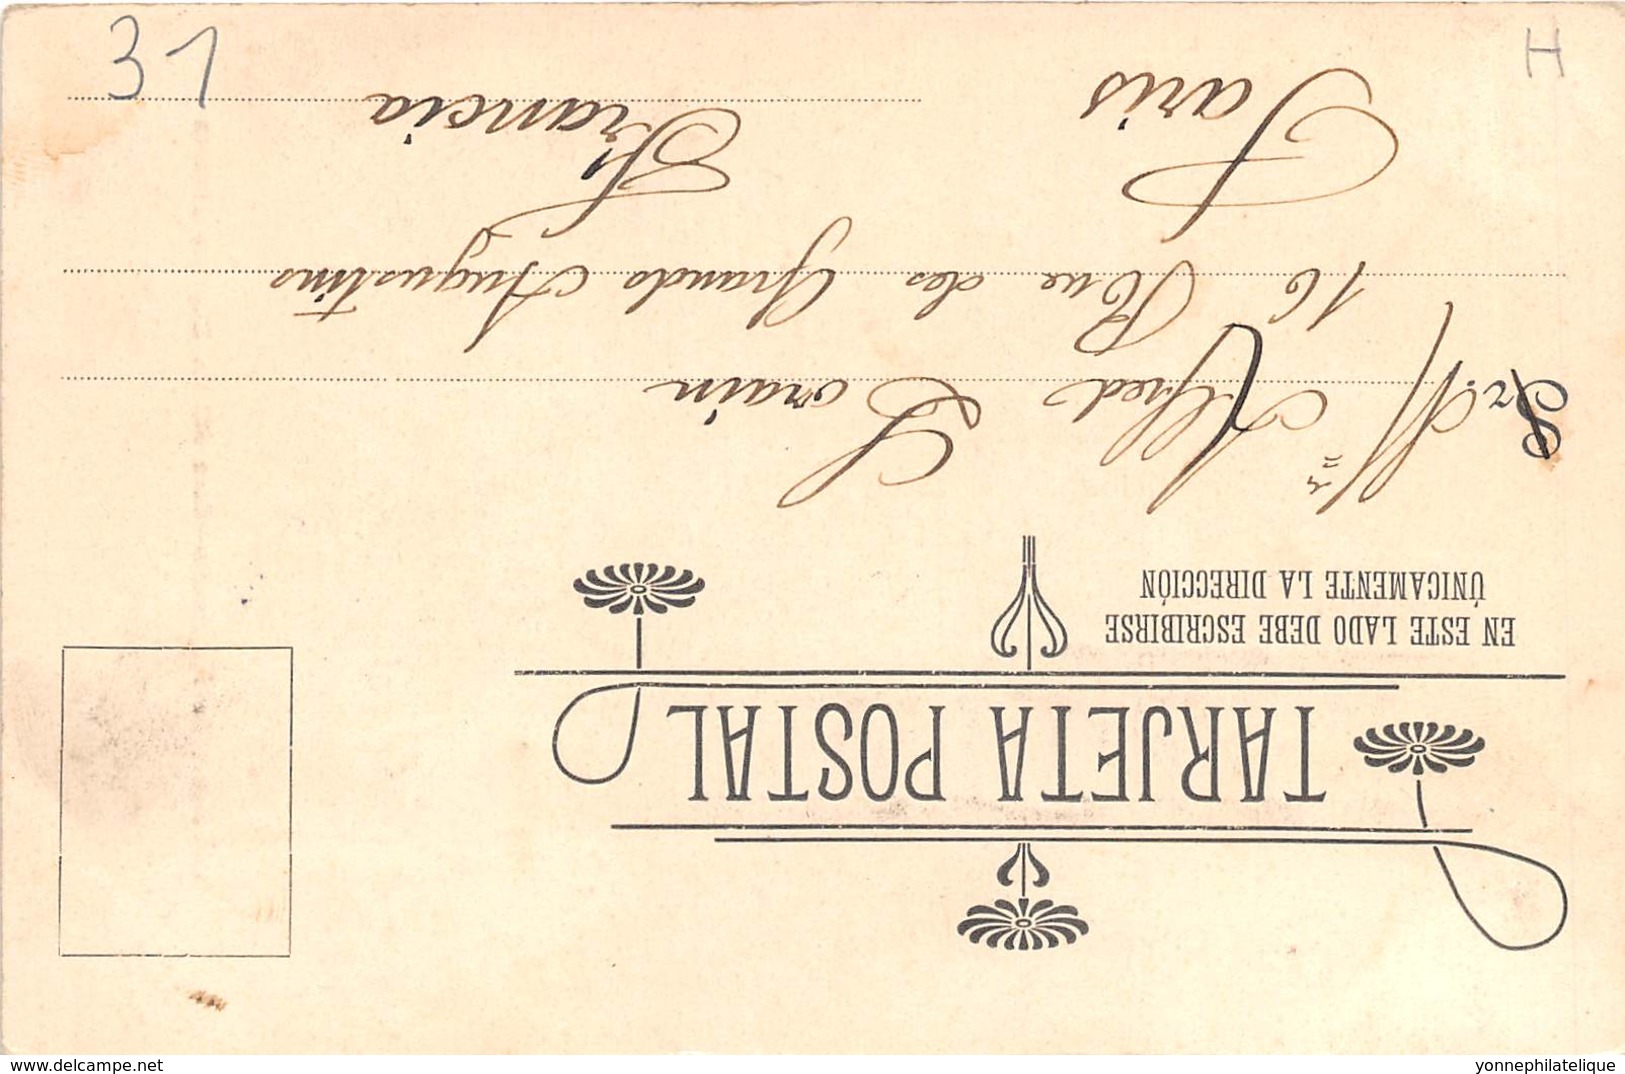 TARJETA POSTAL
EN ESTE LADO DEBE ESCRIBIRSE
ÚNICAMENTE LA DIRECCIÓN
Sr. Mr Alfred Lorain
16 Rue des Grands Augustins
Paris Francia
31
H
delcampe.net
yonnephilatelique